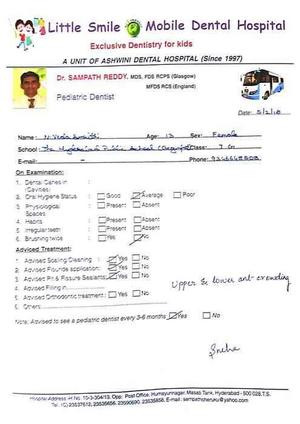 Little Smile Mobile Dental Hospital
Exclusive Dentistry for kids
A UNIT OF ASHWINI DENTAL HOSPITAL (Since 1997)
Dr. SAMPATH REDDY, MDS, FDS RCPS (Glasgow)
MFDS RCS (England)
Pediatric Dentist
Date:
Name: Age: 13 Sex: Female
School: The Public School Class: 7
E-mail: - Phone:
On Examination:
1. Dental Caries in
(Cavities)
2. Oral Hygiene Status : Good Average Poor
3. Physiological : Present Absent
Spaces
4. Habits : Present Absent
5. Irregular teeth : Present Absent
6. Brushing twice : Yes No
Advised Treatment:
1. Advised Scaling Cleaning : Yes No
2. Advised Flouride application: Yes No
3. Advised Pit & Fissure Sealants Yes No
4. Advised Filling in
5. Advised Orthodontic treatment : Yes No
6. Others:
Upper & lower ant-crowding
Note: Advised to see a pediatric dentist every 3-6 months Yes No
Hospital Address: H.No. 10-3-304/13, Opp. Post Office, Humayunnagar, Masab Tank, Hyderabad - 500 028, T.S.